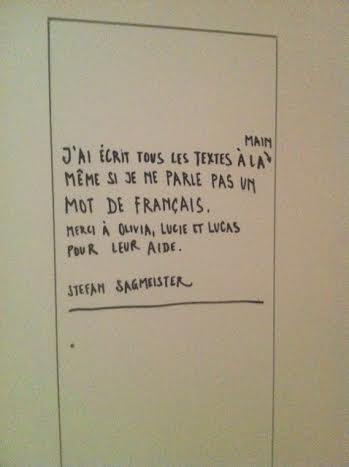 MAIN
J'AI ÉCRIT TOUS LES TEXTES À LA
MÊME SI JE NE PARLE PAS UN
MOT DE FRANÇAIS.
MERCI À OLIVIA, LUCIE ET LUCAS
POUR LEUR AIDE.
STEFAN SAGMEISTER